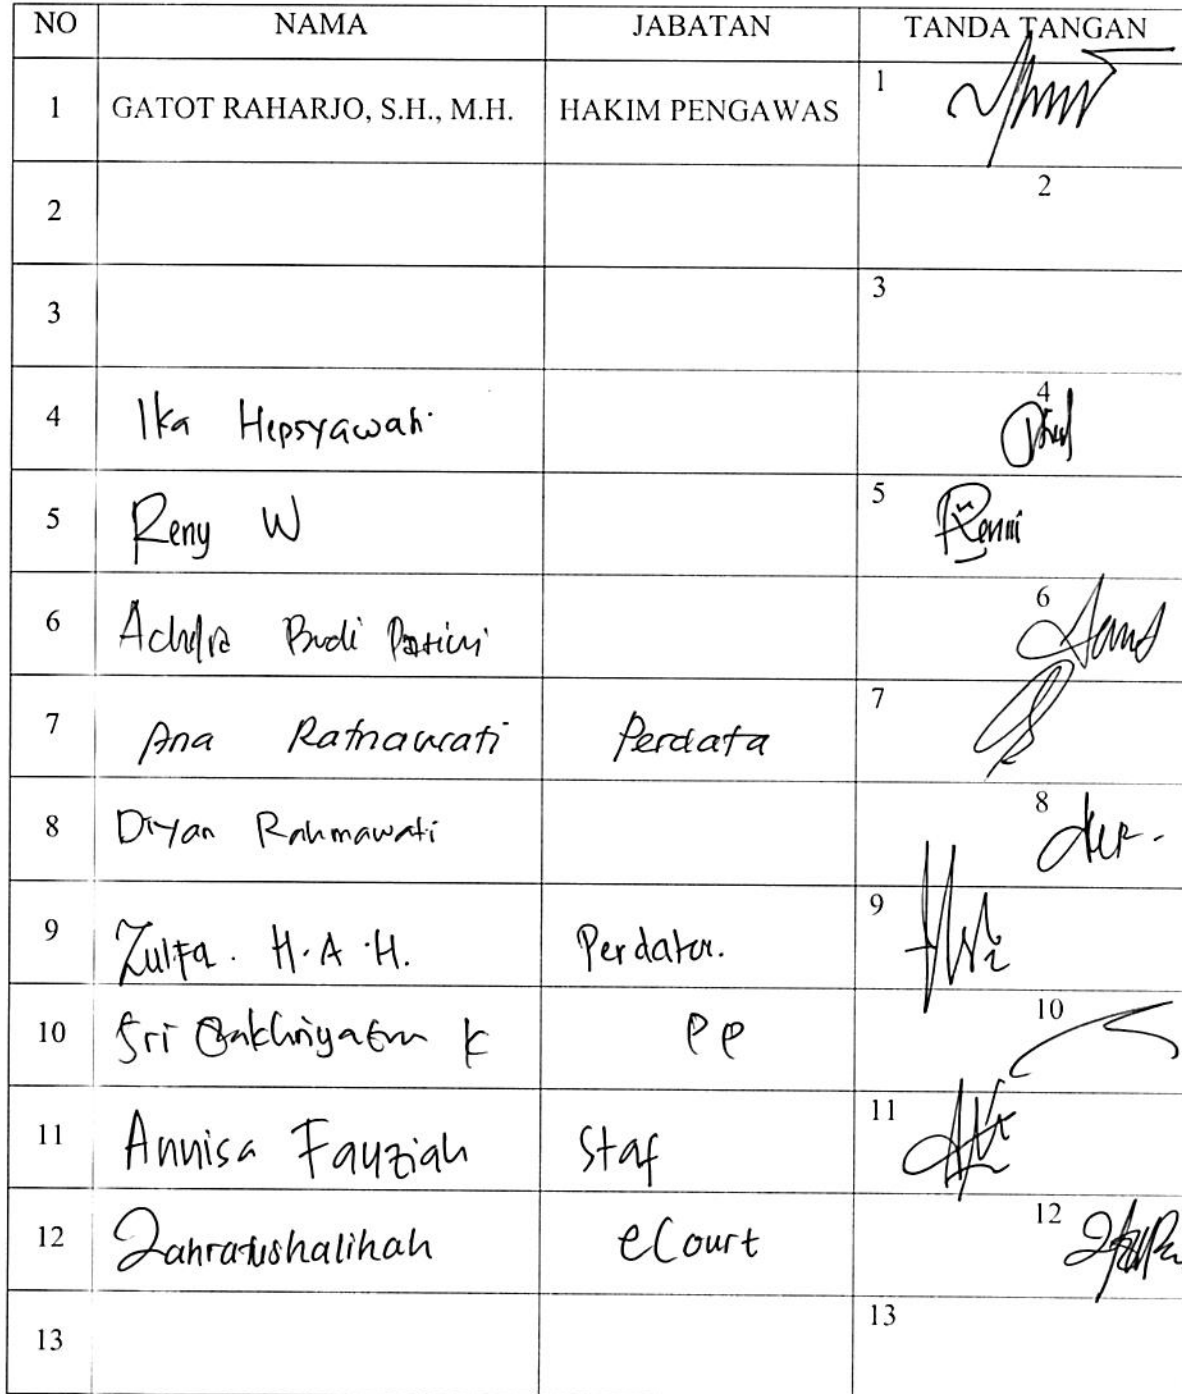 NO NAMA JABATAN TANDA TANGAN
1 GATOT RAHARJO, S.H., M.H. HAKIM PENGAWAS 1
2 2
3 3
4 Ika Hepsyawati 4
5 Reny W 5 Renni
6 Budi 6
7 Ana Ratnawati Perdata 7
8 Diyan Rahmawati 8
9 Zulfa. H.A.H. Perdata. 9
10 Sri K PP 10
11 Annisa Fauziah Staf 11
12 Zahratushalihah eCourt 12
13 13